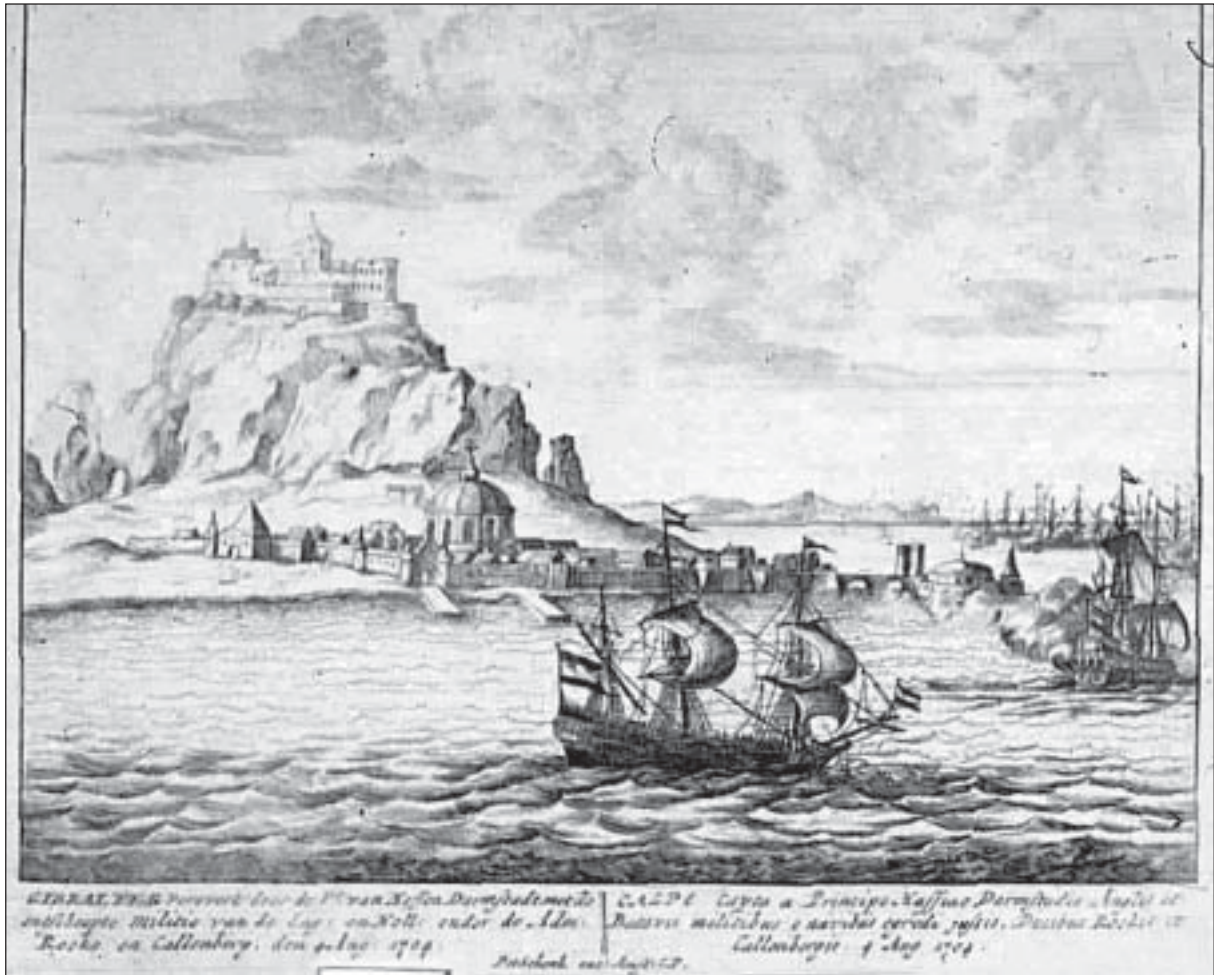 GIBRALTER Verovert door de Pr. van Hessen Darmstadt met de
ontscheepte Militie van de Eng: en Holl: onder de Adm:
Rooke, en Callenberg, den 4 Aug: 1704.
CALPE Capta a Principe Hassiae Darmstadio Anglis et
Batavis militibus e navibus Ducibus Rookio et
Callenbergio 4 Aug 1704.
Pet: Schenk exc: Amst: C.P.